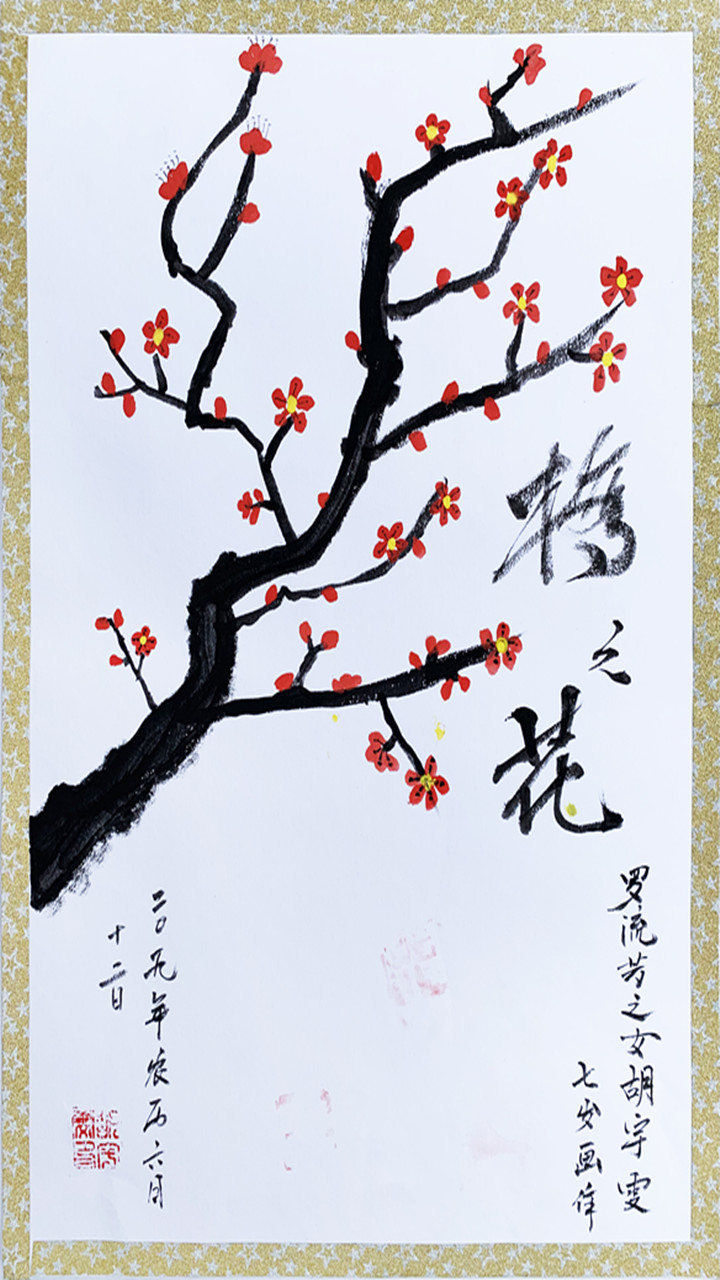 橋之花
罗流芳之女胡宇雯
七岁画作
二〇一九年农历六月
十二日